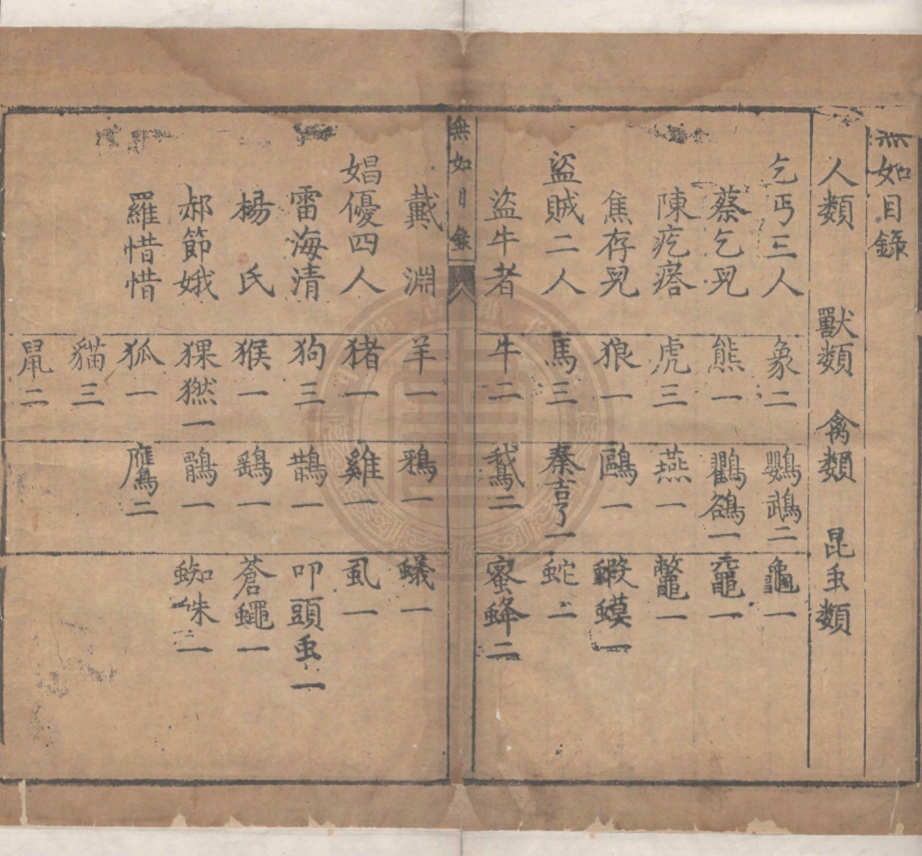 無如目錄
人類 獸類 禽類 昆虫類
乞丐三人 象二 鸚鵡二 龜一
蔡乞兒 熊一 鸛鵒一 黿一
陳疙瘩 虎三 燕一 鼈一
焦存兒 狼一 鷗一 蝦蟆一
盜賊二人 馬三 秦吉了一 蛇二
盜牛者 牛二 鵝二 蜜蜂二
無如目錄 八
戴淵 羊一 鴉一 蟻一
娼優四人 猪一 雞一 虱一
雷海清 狗三 鵲一 叩頭虫一
楊氏 猴一 鷄一 蒼蠅一
郝節娥 猓㺐一 鶻一 蜘蛛一
羅惜惜 狐一 鷹二
貓三
鼠二